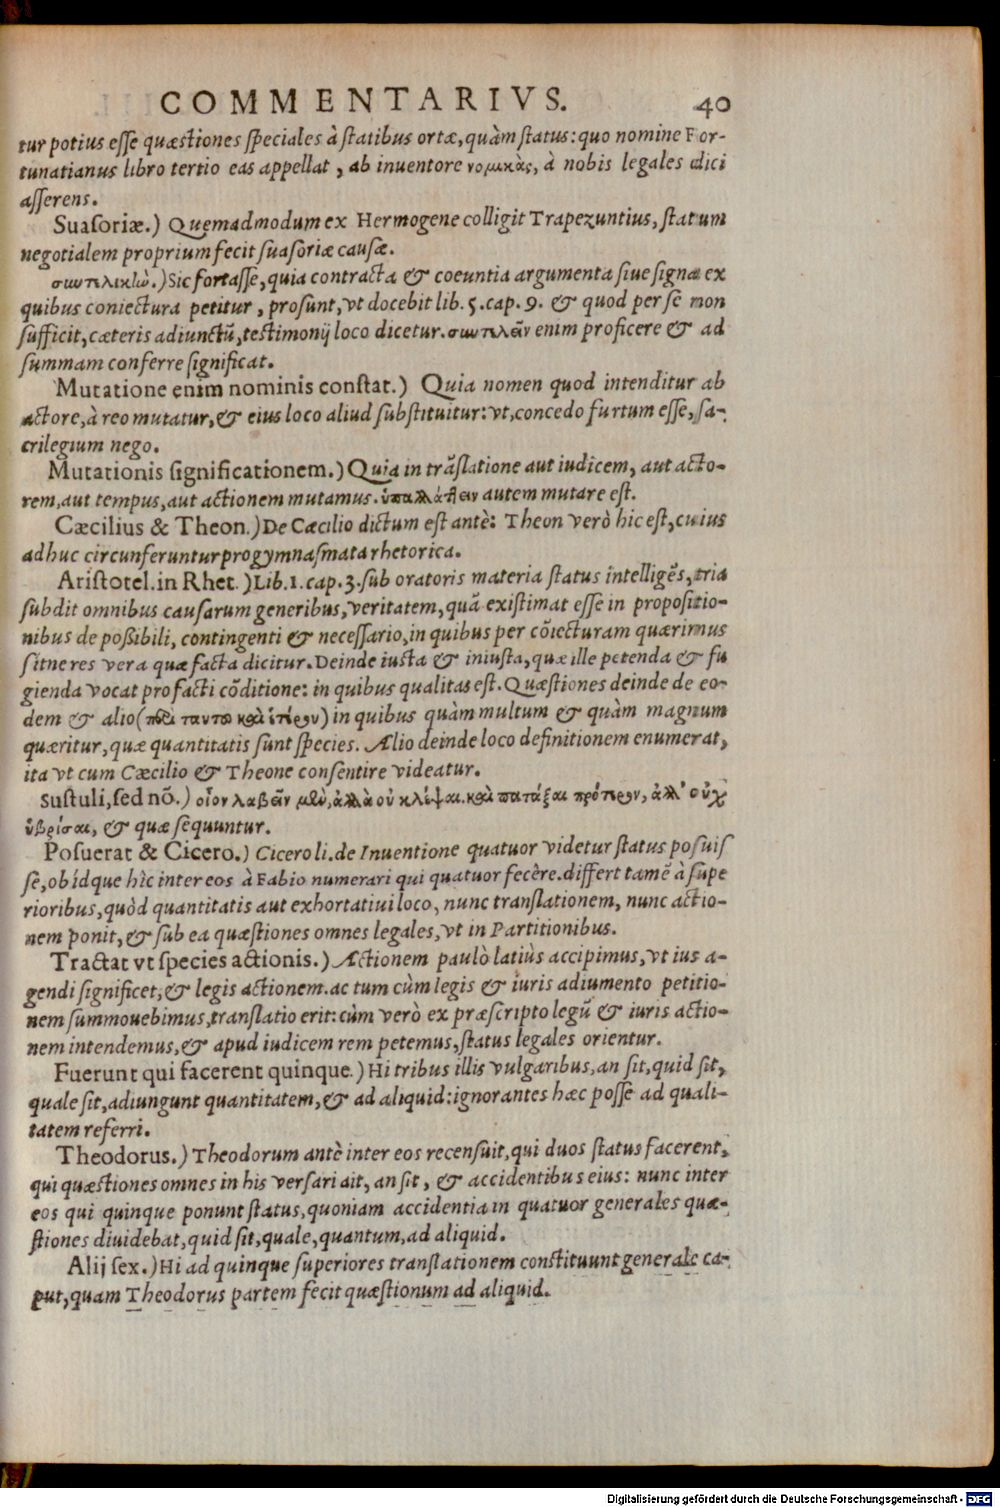 COMMENTARIVS. 40
tur potius esse quæstiones speciales à statibus ortæ, quàm status: quo nomine For-
tunatianus libro tertio eas appellat, ab inuentore νομικὰς, à nobis legales dici
asserens.
Suasoriæ.) Quemadmodum ex Hermogene colligit Trapezuntius, statum
negotialem proprium fecit suasoriæ causæ.
συντελικὴν.) Sic fortasse, quia contracta & coeuntia argumenta siue signa ex
quibus coniectura petitur, prosunt, vt docebit lib. 5. cap. 9. & quod per se non
sufficit, cæteris adiunctũ, testimonij loco dicetur. συντελεῖν enim proficere & ad
summam conferre significat.
Mutatione enim nominis constat.) Quia nomen quod intenditur ab
actore, à reo mutatur, & eius loco aliud substituitur: vt, concedo furtum esse, sa-
crilegium nego.
Mutationis significationem.) Quia in trãslatione aut iudicem, aut acto-
rem, aut tempus, aut actionem mutamus. ὑπαλλάττειν autem mutare est.
Cæcilius & Theon.) De Cæcilio dictum est antè: Theon verò hic est, cuius
adhuc circunferuntur progymnasmata rhetorica.
Aristotel. in Rhet.) Lib. 1. cap. 3. sub oratoris materia status intelligẽs, tria
subdit omnibus causarum generibus, veritatem, quã existimat esse in propositio-
nibus de possibili, contingenti & necessario, in quibus per cõiecturam quærimus
sitne res vera quæ facta dicitur. Deinde iusta & iniusta, quæ ille petenda & fu
gienda vocat pro facti cõditione: in quibus qualitas est. Quæstiones deinde de eo-
dem & alio (περὶ ταυτοῦ καὶ ἑτέρου) in quibus quàm multum & quàm magnum
quæritur, quæ quantitatis sunt species. Alio deinde loco definitionem enumerat,
ita vt cum Cæcilio & Theone consentire videatur.
Sustuli, sed nõ.) οἷον λαβεῖν μὲν, ἀλλὰ οὐ κλέψαι. καὶ πατάξαι πρότερον, ἀλλ' οὐχ
ὑβρίσαι, & quæ sequuntur.
Posuerat & Cicero.) Cicero li. de Inuentione quatuor videtur status posuis
se, ob idque hìc inter eos à Fabio numerari qui quatuor fecêre. differt tamẽ à supe
rioribus, quòd quantitatis aut exhortatiui loco, nunc translationem, nunc actio-
nem ponit, & sub ea quæstiones omnes legales, vt in Partitionibus.
Tractat vt species actionis.) Actionem paulò latiùs accipimus, vt ius a-
gendi significet, & legis actionem. ac tum cùm legis & iuris adiumento petitio-
nem summouebimus, translatio erit: cùm verò ex præscripto legũ & iuris actio-
nem intendemus, & apud iudicem rem petemus, status legales orientur.
Fuerunt qui facerent quinque.) Hi tribus illis vulgaribus, an sit, quid sit,
quale sit, adiungunt quantitatem, & ad aliquid: ignorantes hæc posse ad quali-
tatem referri.
Theodorus.) Theodorum antè inter eos recensuit, qui duos status facerent,
qui quæstiones omnes in his versari ait, an sit, & accidentibus eius: nunc inter
eos qui quinque ponunt status, quoniam accidentia in quatuor generales quæ-
stiones diuidebat, quid sit, quale, quantum, ad aliquid.
Alij sex.) Hi ad quinque superiores translationem constituunt generale ca-
put, quam Theodorus partem fecit quæstionum ad aliquid.
Digitalisierung gefördert durch die Deutsche Forschungsgemeinschaft - DFG